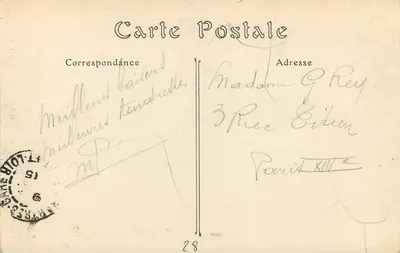 Carte Postale
Correspondance
Adresse
Meilleurs baisers
Meilleures tendresses
Madame G Rey
3 Rue
Paris XIIIe
15
9
28